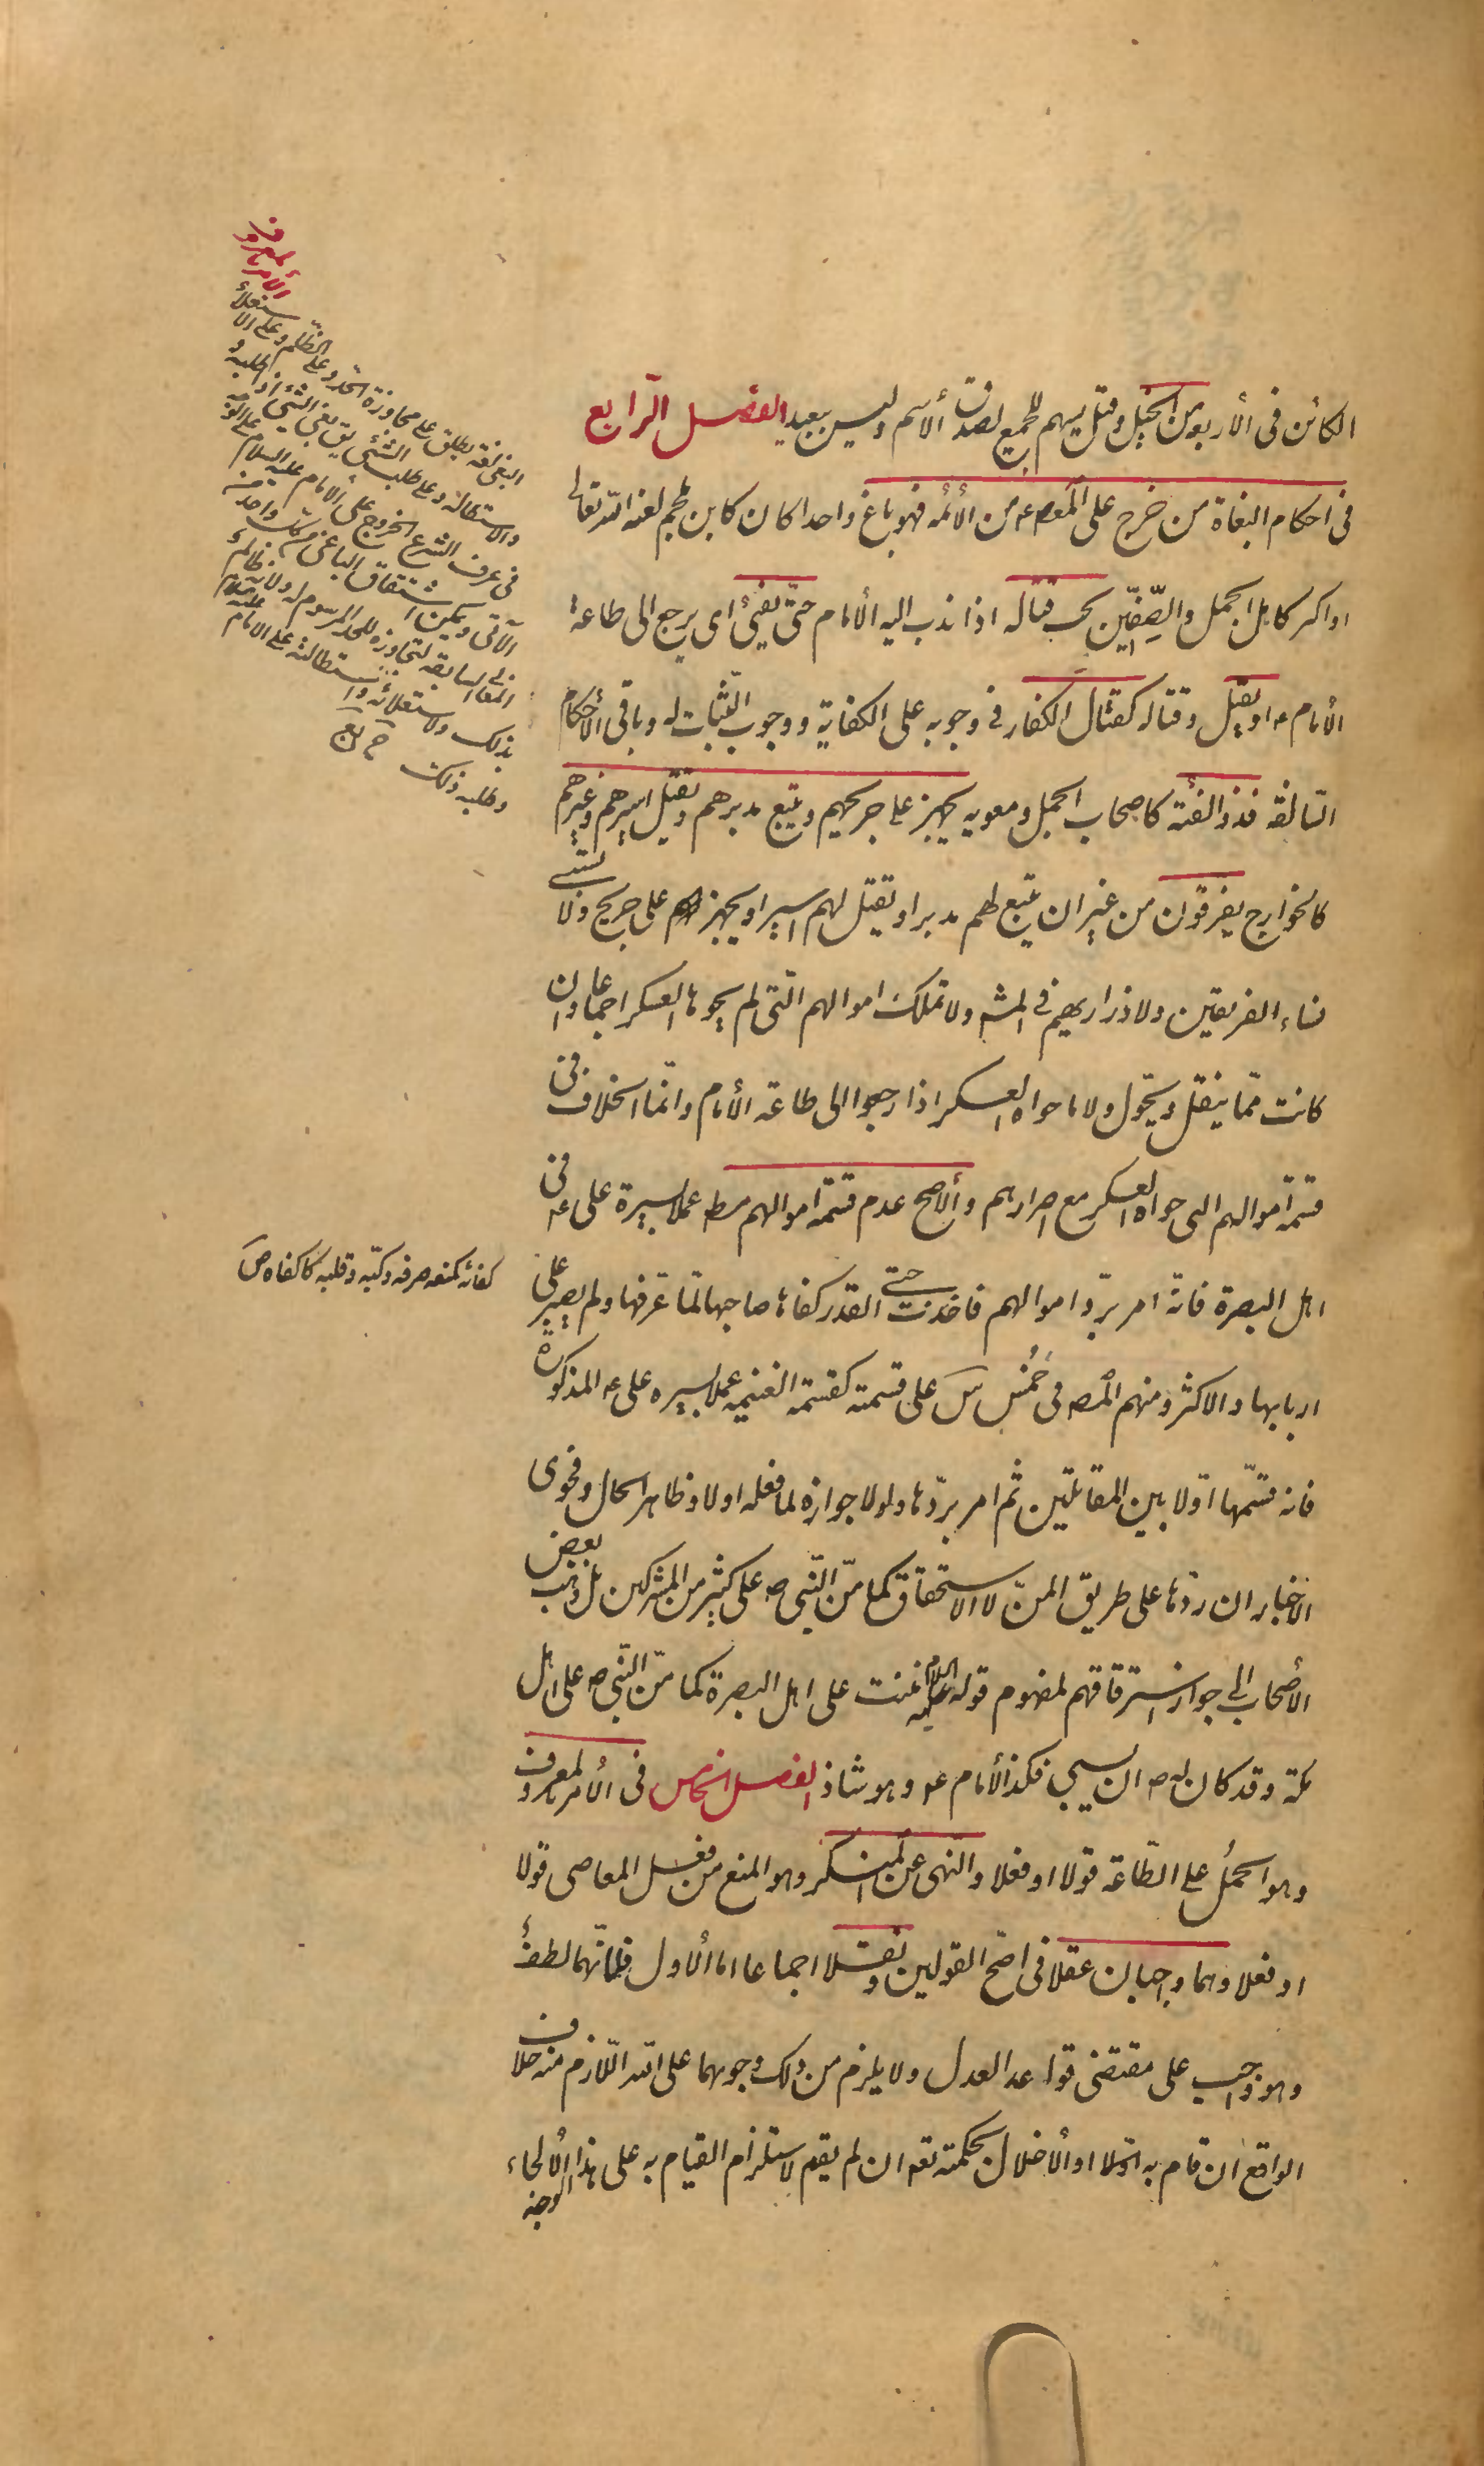 الكائن فى الأربع من الخيل وقيل يسهم للجميع لصدق الأسم وليس ببعيد الفصل الرابع
فى احكام البغاة من خرج على المعصوم من الأئمه فهو باغ واحدا كان كابن ملجم لعنه الله تعالى
او اكثر كاهل الجمل والصفّين يجب قتاله اذا ندب اليه الأمام حتّى يفيئ اى يرجع الى طاعة
الأمام ع او يقتل وقتاله كقتال الكفار فى وجوبه على الكفاية ووجوب الثّبات له وباقى الأحكام
السّالفة فذو الفئة كاصحاب الجمل ومعويه يجهز على جريحهم ويتبع مدبرهم ويقتل اسيرهم وغيرهم
كالخوارج يفرقون من غير ان يتبع لهم مدبر او يقتل لهم اسير او يجهز على جريح ولا تسبى
نساء الفريقين ولا ذراريهم فى المشهور ولا تملك اموالهم الّتى لم يحوها العسكر اجماعا وان
كانت ممّا ينقل ويحّول ولا ما حواه العسكر اذا رجعوا الى طاعة الأمام وانّما الخلاف فى
قسمة اموالهم التى حواه العسكر مع اصرارهم والأصح عدم قسمة اموالهم مطلقا عملا بسيرة على ع فى
اهل البصرة فانّه امر بردّ اموالهم فاخذت حتى القدر كفاها صاحبها لمّا عرفها ولم يصبر على
اربابها والاكثر ومنهم المصه فى خُمُس س على قسمته كقسمة الغنيمه عملا بسيره على ع المذكورة
فانه قسّمها اوّلا بين المقاتلين ثم امر بردّها ولولا جوازه لما فعله اولا وظاهر الحال وفحوى
الاخبار ان ردّها على طريق المنّ لا الاستحقاق كما منّ النّبى ص على كثير من المشركين بل ذهب بعض
الأصحاب الى جواز استرقاقهم لمفهوم قوله عليه السلام مننت على اهل البصرة كما منّ النّبى ص على اهل
مكة وقد كان له ص ان يسبى فكذا الأمام ع وهو شاذ الفصل الخامس فى الأمر بالمعروف
وهو الحمل على الطّاعة قولا او فعلا والنّهى عن المنكر وهو المنع من فعل المعاصى قولا
او فعلا وهما واجبان عقلا فى اصّح القولين ونقلا اجماعا اما الأول فلانّهما لطف
وهو واجب على مقتضى قواعد العدل ولا يلزم من ذلك وجوبهما على الله اللّازم منه خلاف
الواقع ان قام به اوّلا او الأخلال بحكمته تعه ان لم يقم لاستلزام القيام به على هذا الوجه الألجاء
الأمر بالمعروف
البغى لغة يطلق على مجاوزة الحدّ وعلى الظّلم وعلى الاستعلاء
والاستطالة وعلى طلب الشّئ يق بغى الشّئ اذا طلبه و
فى عرف الشرع الخروج على الأمام عليه السلام على الوجه
الآتى ويمكن اشتقاق الباغى من كلّ واحد من
المعانى السابقه لتجاوزه للحد المرسوم له ولانه ظالم
بذلك ولاستعلائه واستطالته على الامام عليه السلام
وطلبه ذلك
كفاه كمنعه صرفه وكبّه وقلبه كاكفاه ص